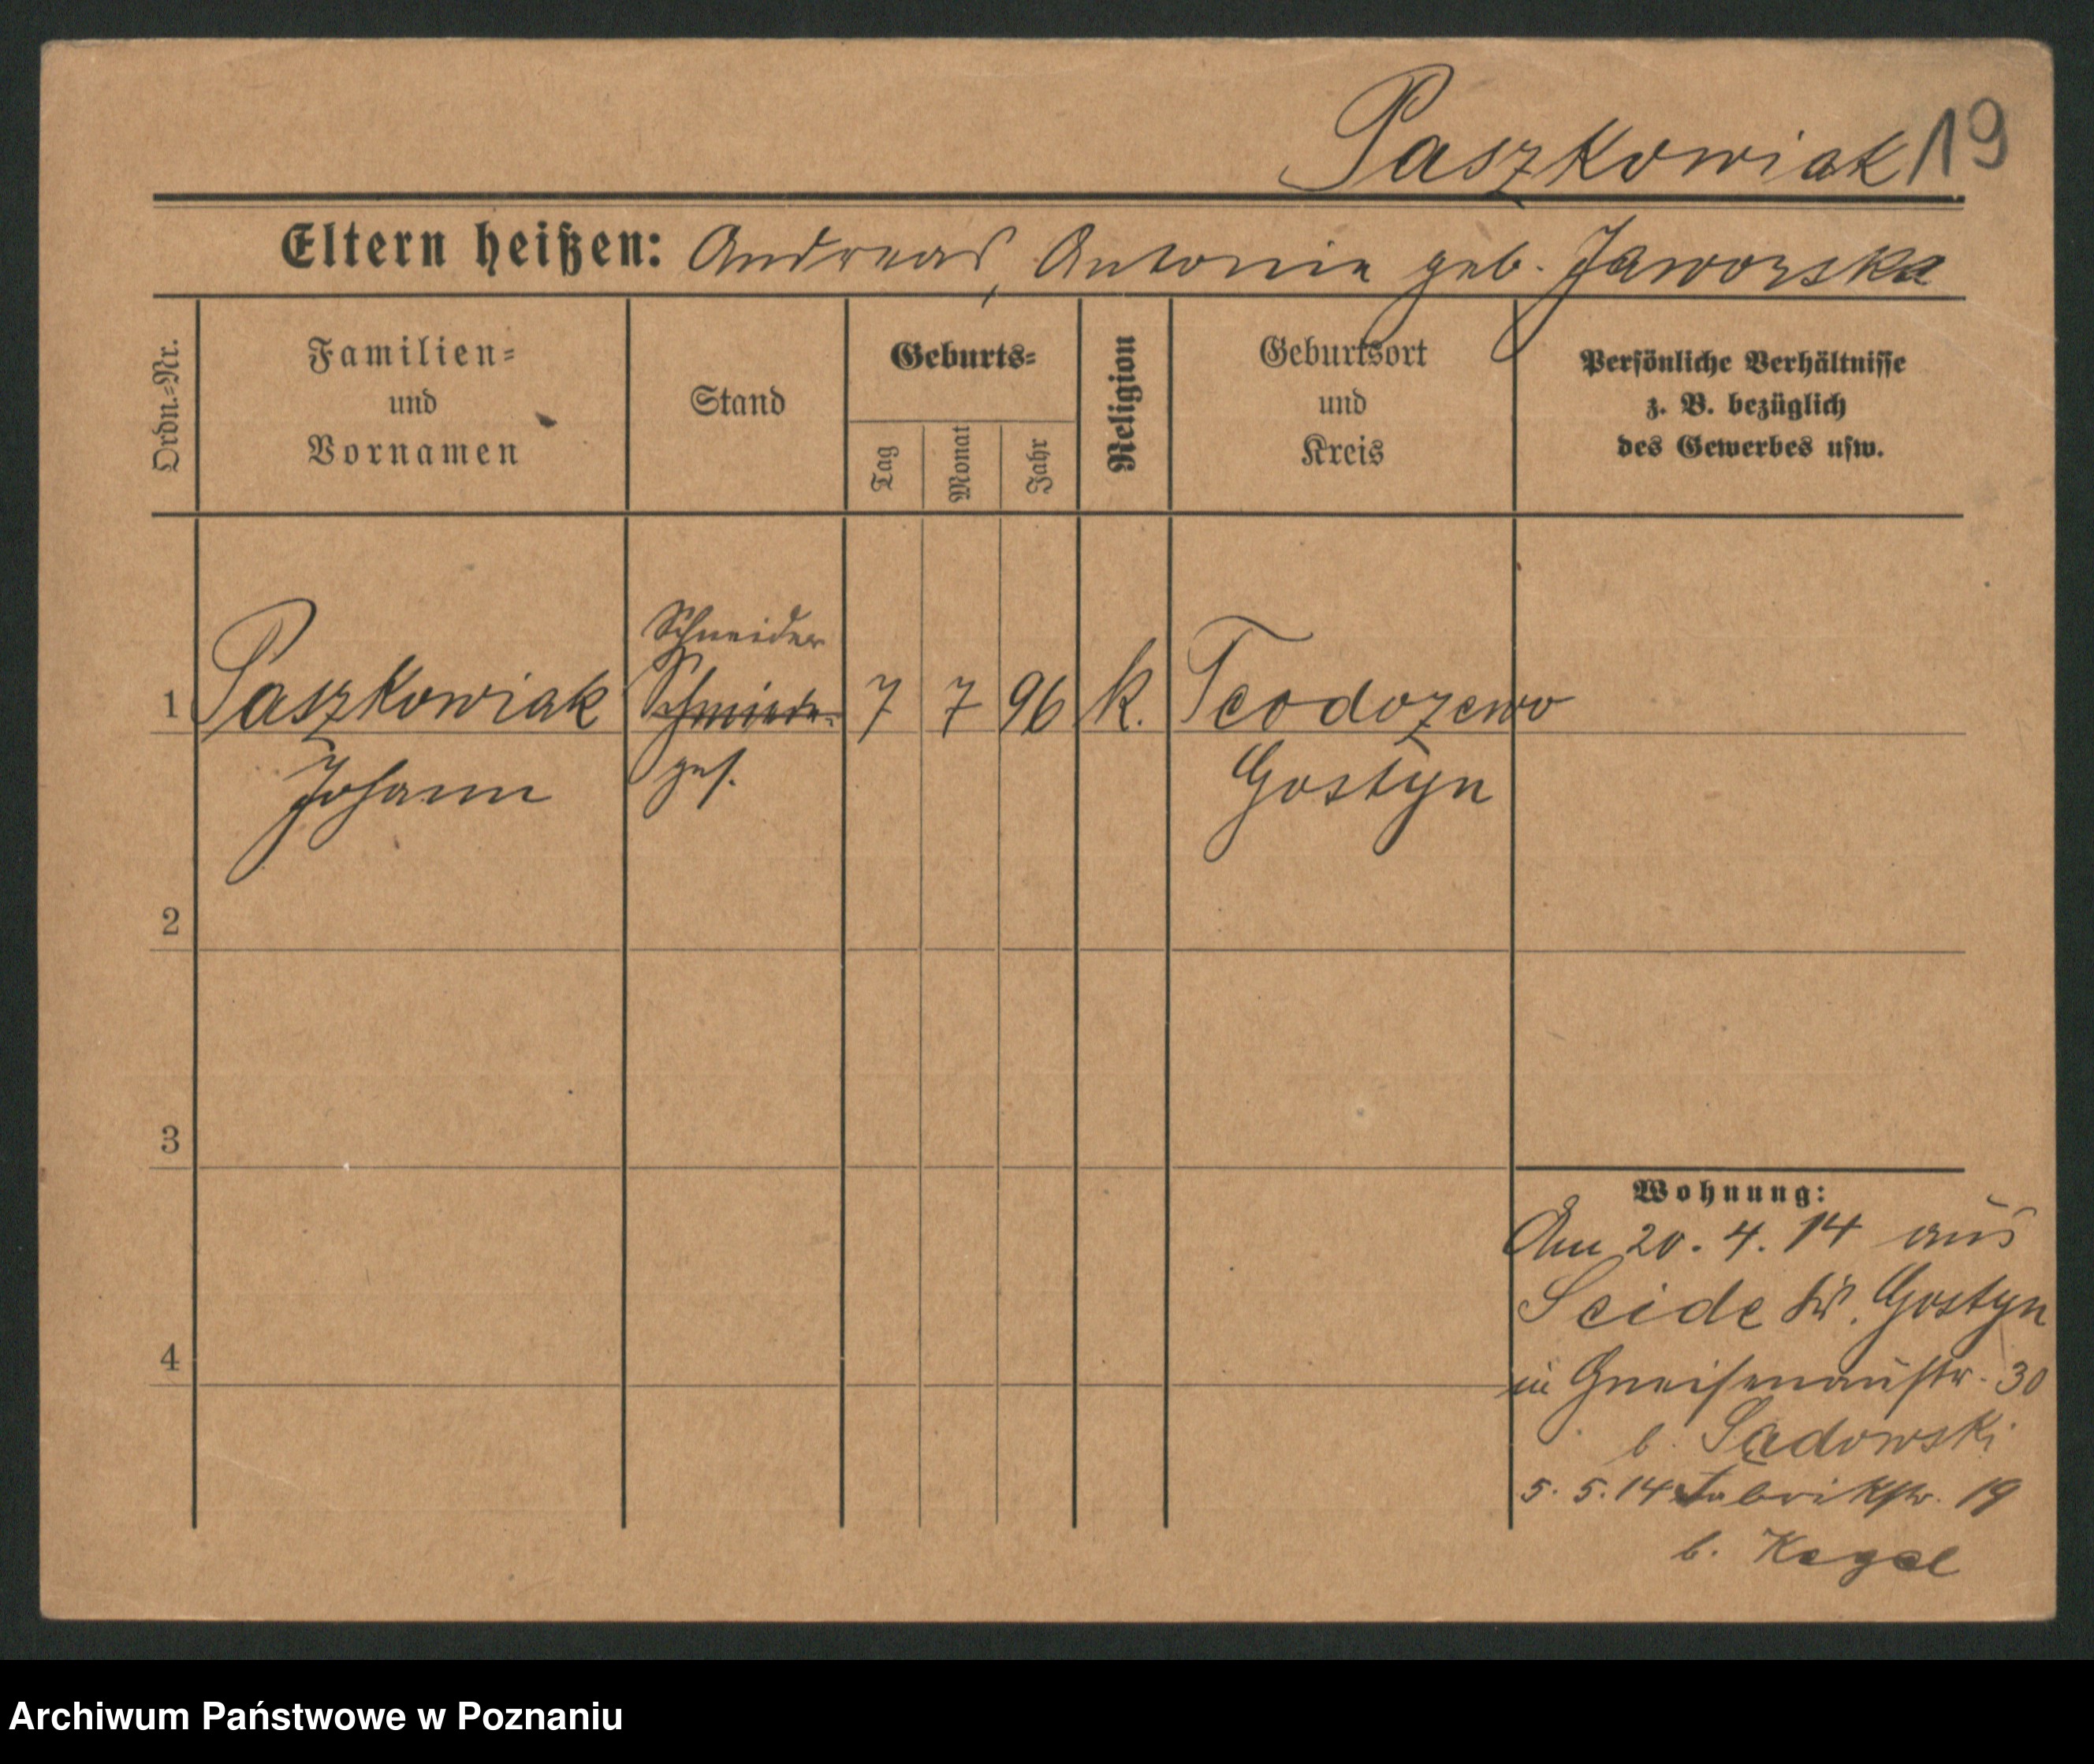 Paszkowiak 19
Eltern heißen: Andreas, Antonie geb. Jaworska
Ordn.-Nr.
Familien-
und
Vornamen
Stand
Geburts-
Tag
Monat
Jahr
Religion
Geburtsort
und
Kreis
Persönliche Verhältnisse
z. B. bezüglich
des Gewerbes usw.
Schneider
1 Paszkowiak Schmiede- 7 7 96 k. Teodozewo
Johann ges. Gostyn
2
3
4
Wohnung:
Am 20. 4. 14 aus
Seide Kr. Gostyn
in Gneisenaustr. 30
b. Sadowski
5. 5. 14 Fabrikstr. 19
b. Kegel
Archiwum Państwowe w Poznaniu